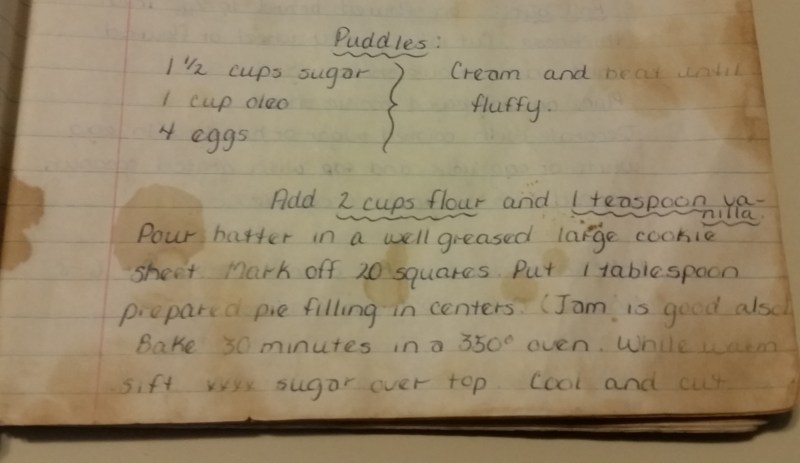 Puddles:
1 1/2 cups sugar } Cream and beat until
1 cup oleo fluffy.
4 eggs
Add 2 cups flour and 1 teaspoon va-
nilla.
Pour batter in a well greased large cookie
sheet Mark off 20 squares Put 1 tablespoon
prepared pie filling in centers. (Jam is good also
Bake 30 minutes in a 350° oven. While warm
sift xxxx sugar over top Cool and cut